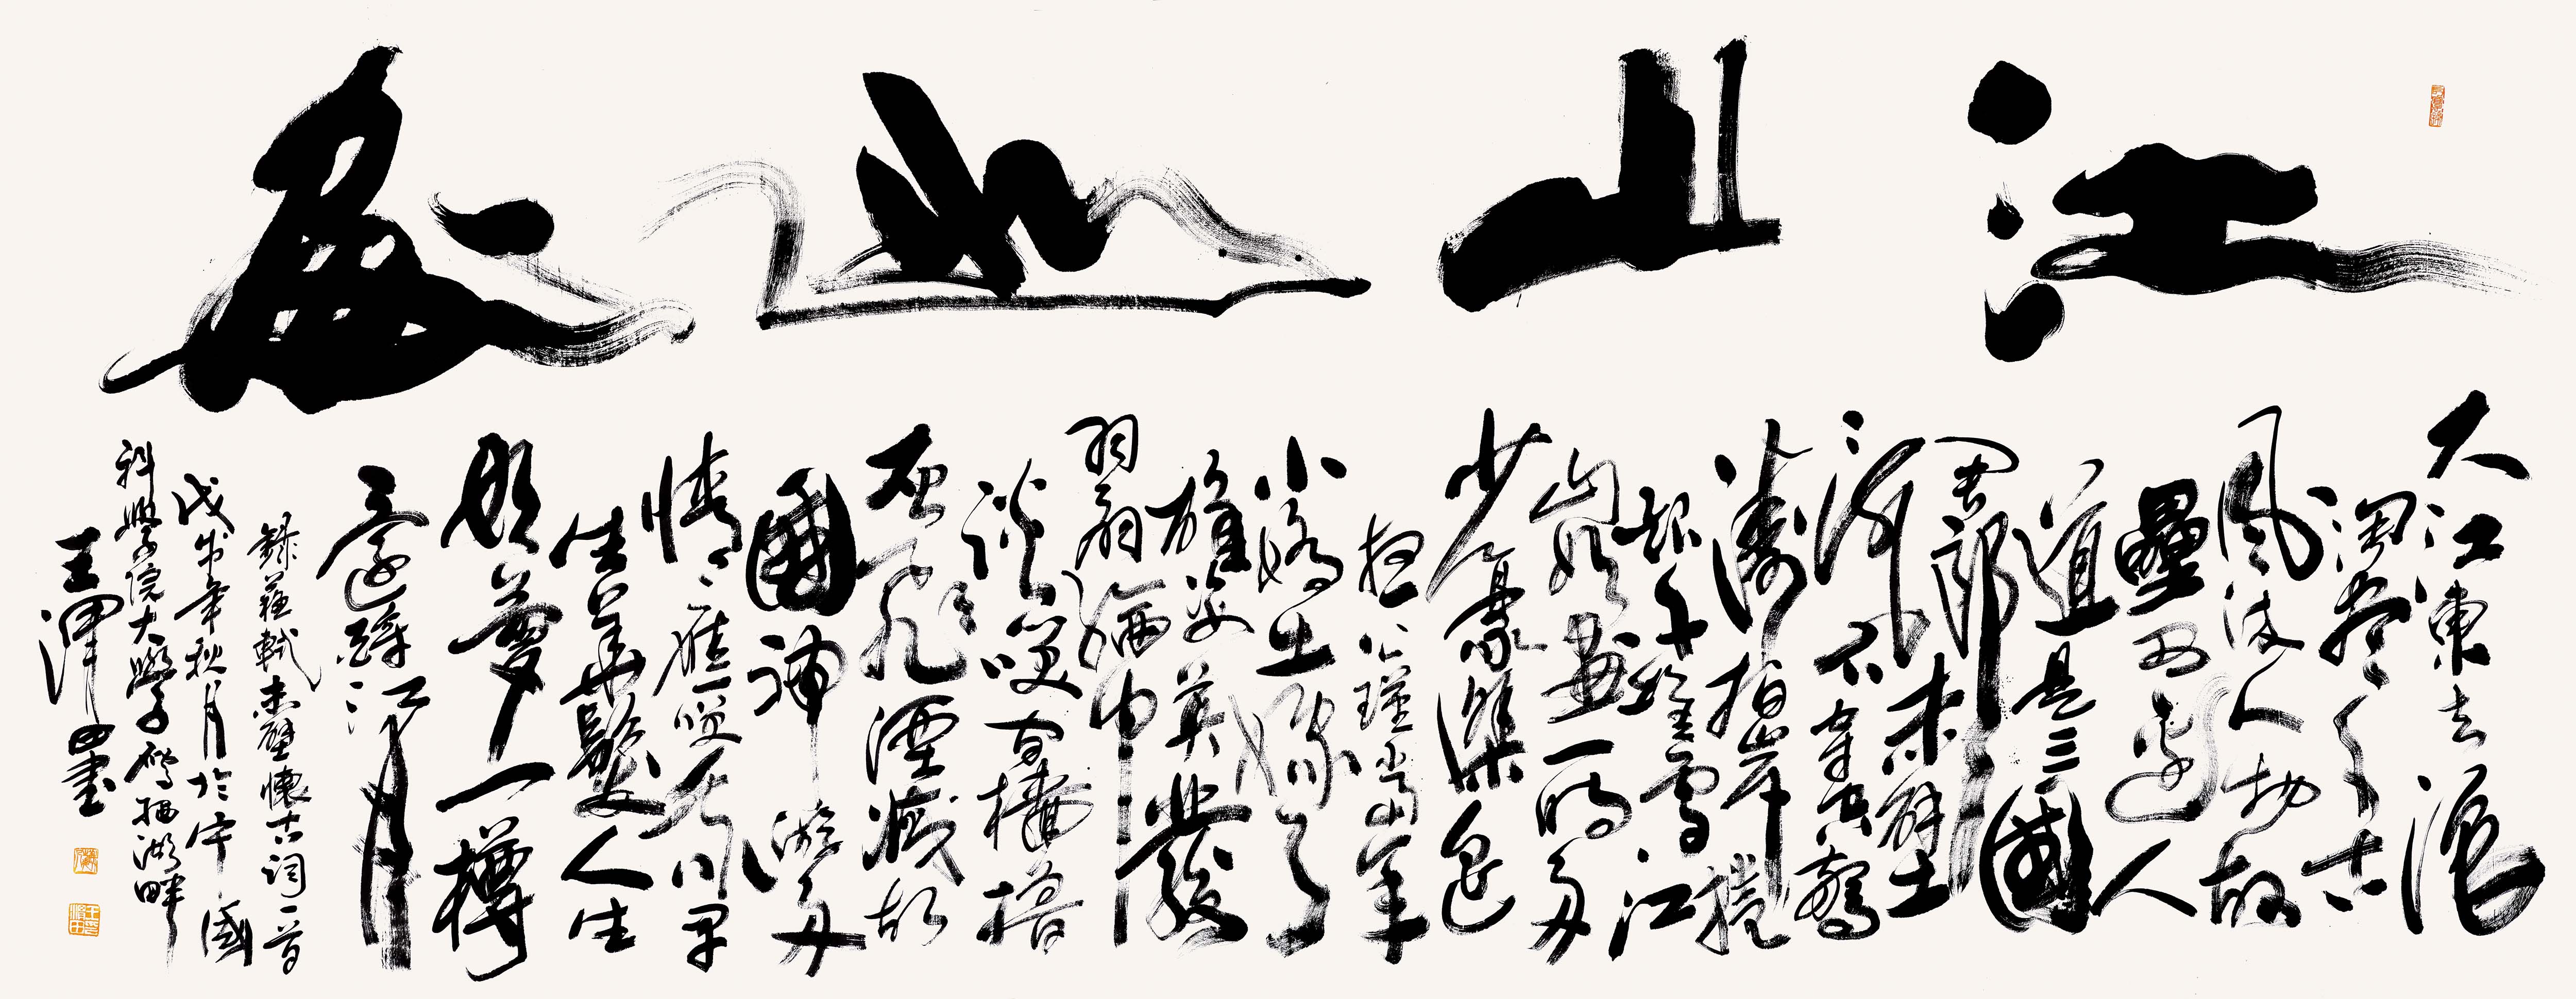 江山如畫
大江東去浪
淘盡千古
風流人物故
壘西邊人
道是三國
周郎赤壁
亂石穿空驚
濤拍岸捲
起千堆雪江
山如畫一時多
少豪傑遙
想公瑾當年
小喬出嫁了
雄姿英發
羽扇綸巾
談笑間檣櫓
灰飛煙滅故
國神游多
情應笑我早
生華髮人生
如夢一樽
還酹江月
錄蘇軾赤壁懷古詞一首
戊戌年秋月於中國
科學院大學雁栖湖畔
王澤田書